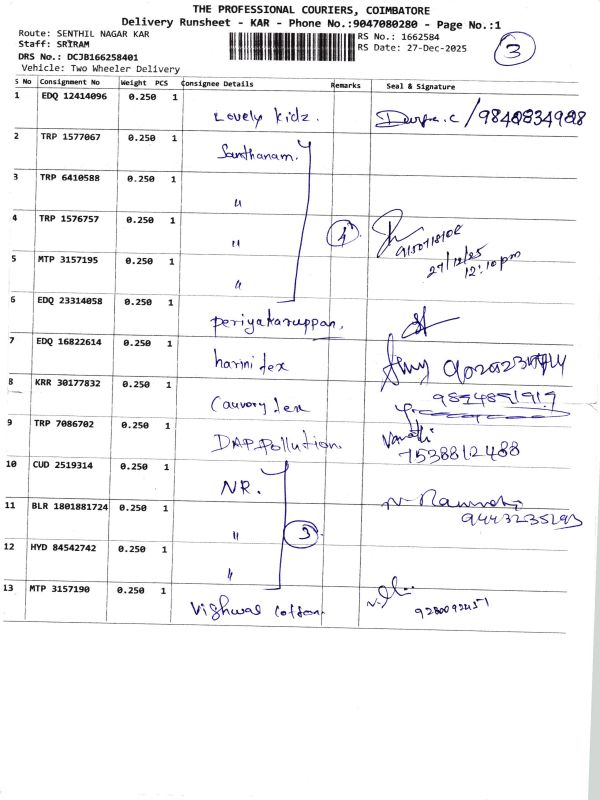 THE PROFESSIONAL COURIERS, COIMBATORE
Delivery Runsheet - KAR - Phone No.:9047080280 - Page No.:1
Route: SENTHIL NAGAR KAR
RS No.: 1662584
3
Staff: SRIRAM
RS Date: 27-Dec-2025
DRS No.: DCJB166258401
Vehicle: Two Wheeler Delivery
S No Consignment No Weight PCS Consignee Details Remarks Seal & Signature
1 EDQ 12414096 0.250 1 Lovely kidz.
2 TRP 1577067 0.250 1 Santhanam.
3 TRP 6410588 0.250 1 "
4 TRP 1576757 0.250 1 " 4
27/12/25
12:10pm
5 MTP 3157195 0.250 1 "
6 EDQ 23314058 0.250 1 periyakaruppan.
7 EDQ 16822614 0.250 1 harini tex
8 KRR 30177832 0.250 1 Cauvory tex
9 TRP 7086702 0.250 1 DAP.Pollution.
7538812488
10 CUD 2519314 0.250 1 NR.
11 BLR 1801881724 0.250 1 " 3
9443235293
12 HYD 84542742 0.250 1 "
13 MTP 3157190 0.250 1 Vishwas cotton.